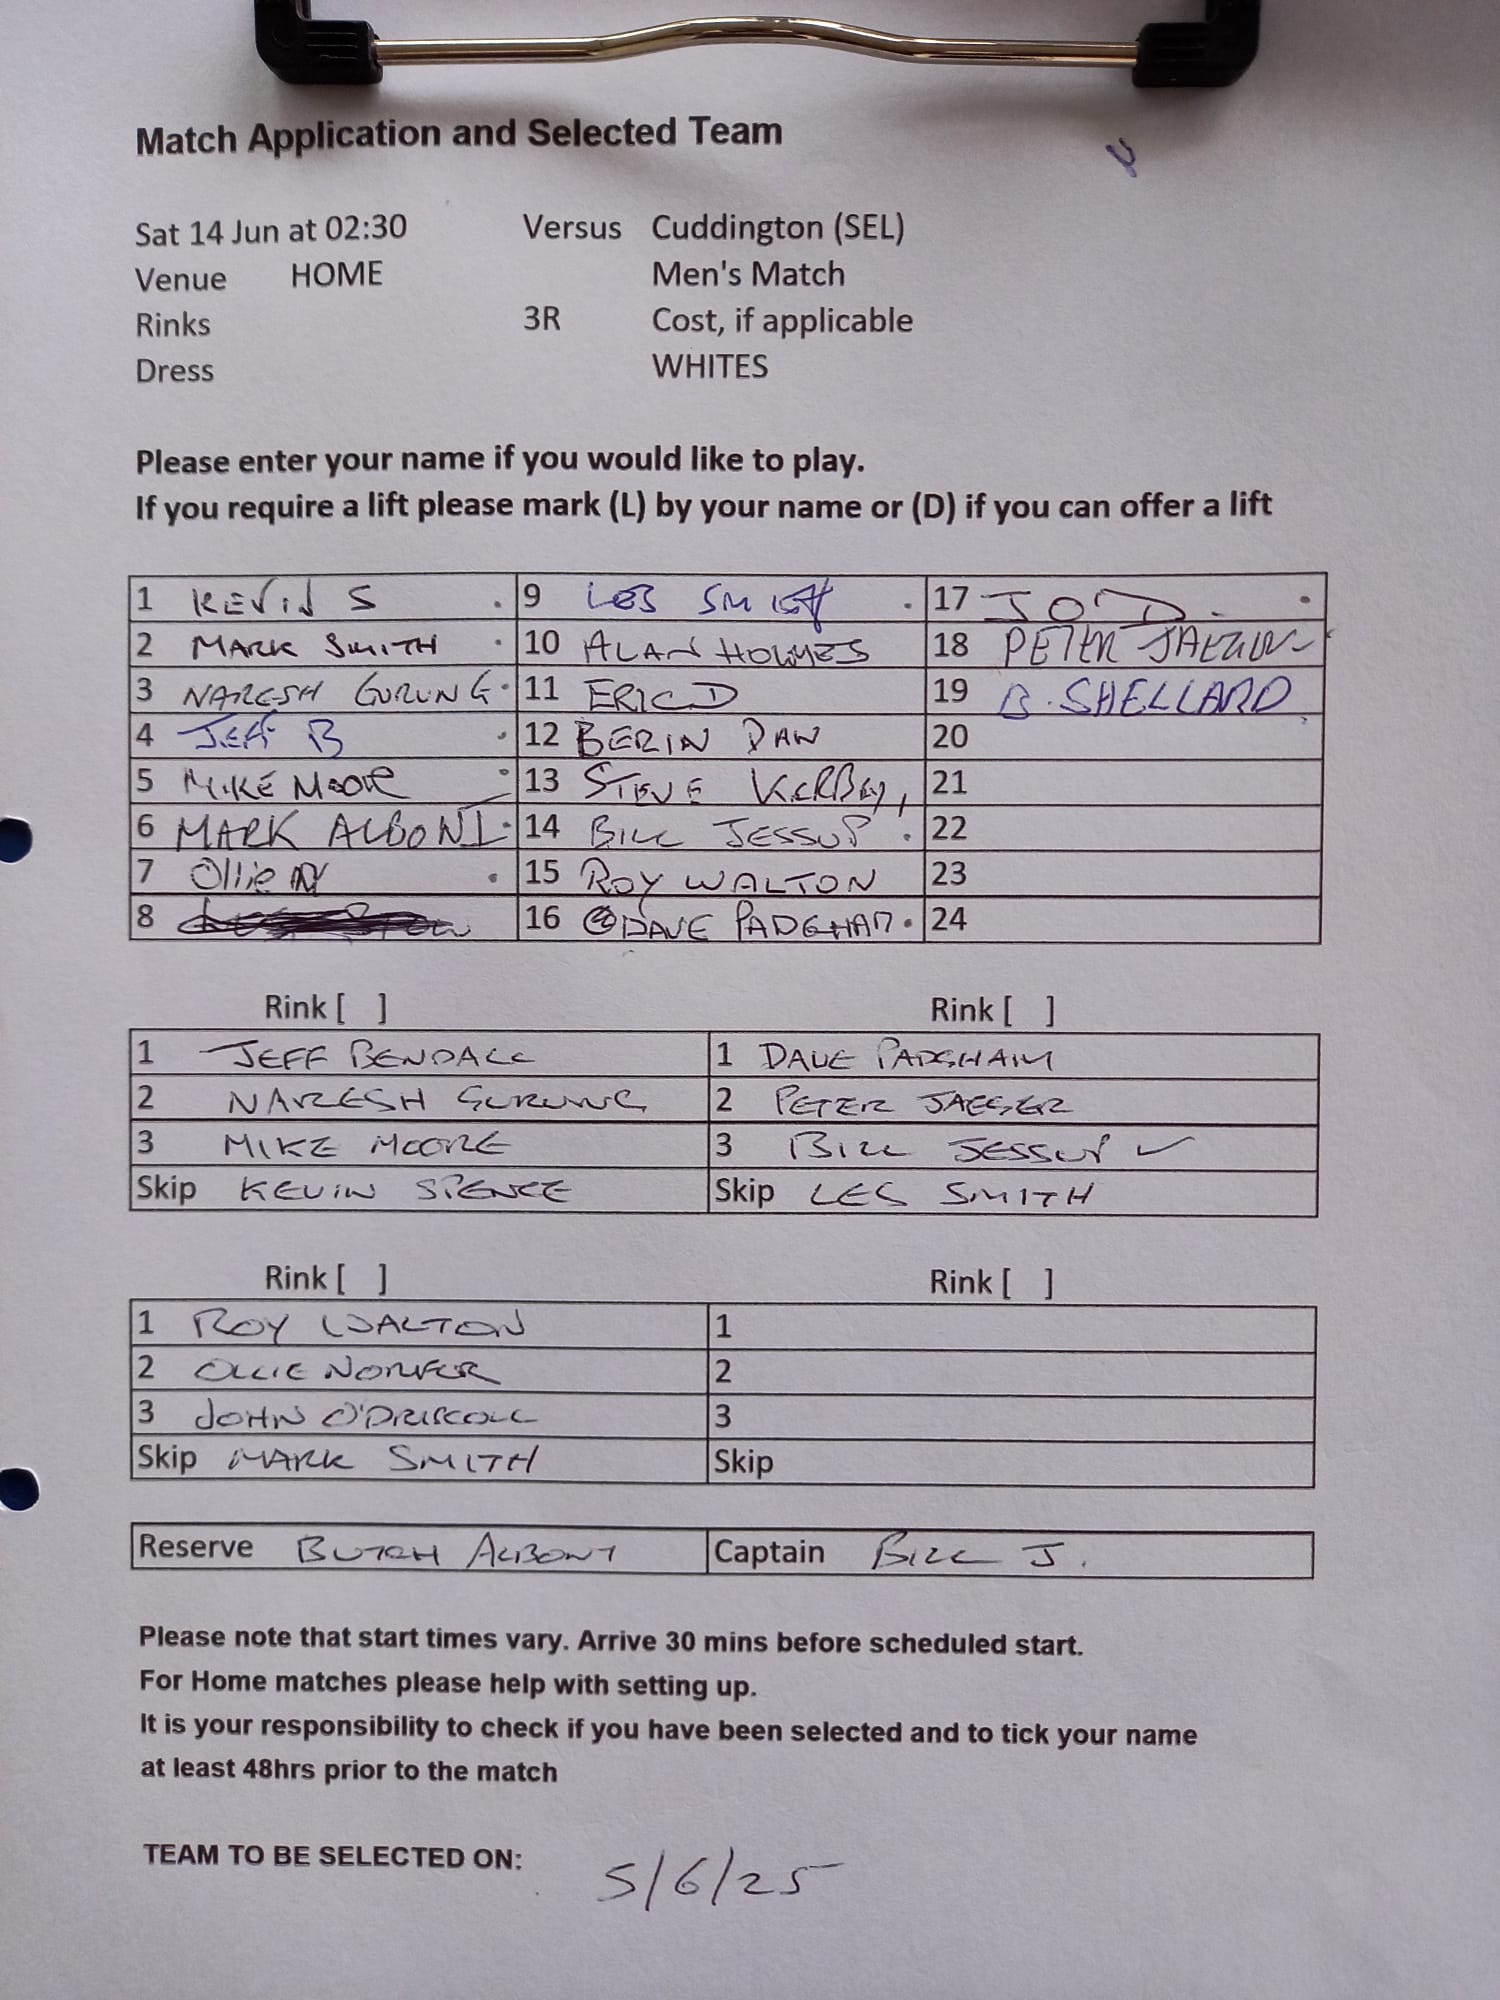 Match Application and Selected Team
Sat 14 Jun at 02:30 Versus Cuddington (SEL)
Venue HOME Men's Match
Rinks 3R Cost, if applicable
Dress WHITES
Please enter your name if you would like to play.
If you require a lift please mark (L) by your name or (D) if you can offer a lift
1 KEVIN S 9 LES SMITH 17 J O'D.
2 MARK SMITH 10 ALAN HOLMES 18 PETER JAEGER
3 NARESH GURUNG 11 ERIC D 19 B. SHELLARD
4 JEFF B 12 BERIN DAW 20
5 MIKE MOORE 13 STEVE 21
6 MARK ALBONI 14 BILL JESSUP 22
7 Ollie N 15 ROY WALTON 23
8 16 DAVE PADGHAM 24
Rink [ ] Rink [ ]
1 JEFF BENDALL 1 DAVE PADGHAM
2 NARESH GURUNG 2 PETER JAEGER
3 MIKE MOORE 3 BILL JESSUP ✓
Skip KEVIN SPENCE Skip LES SMITH
Rink [ ] Rink [ ]
1 ROY WALTON 1
2 OLLIE 2
3 JOHN O'DRISCOLL 3
Skip MARK SMITH Skip
Reserve BUTCH ALBONI Captain BILL J.
Please note that start times vary. Arrive 30 mins before scheduled start.
For Home matches please help with setting up.
It is your responsibility to check if you have been selected and to tick your name
at least 48hrs prior to the match
TEAM TO BE SELECTED ON: 5/6/25